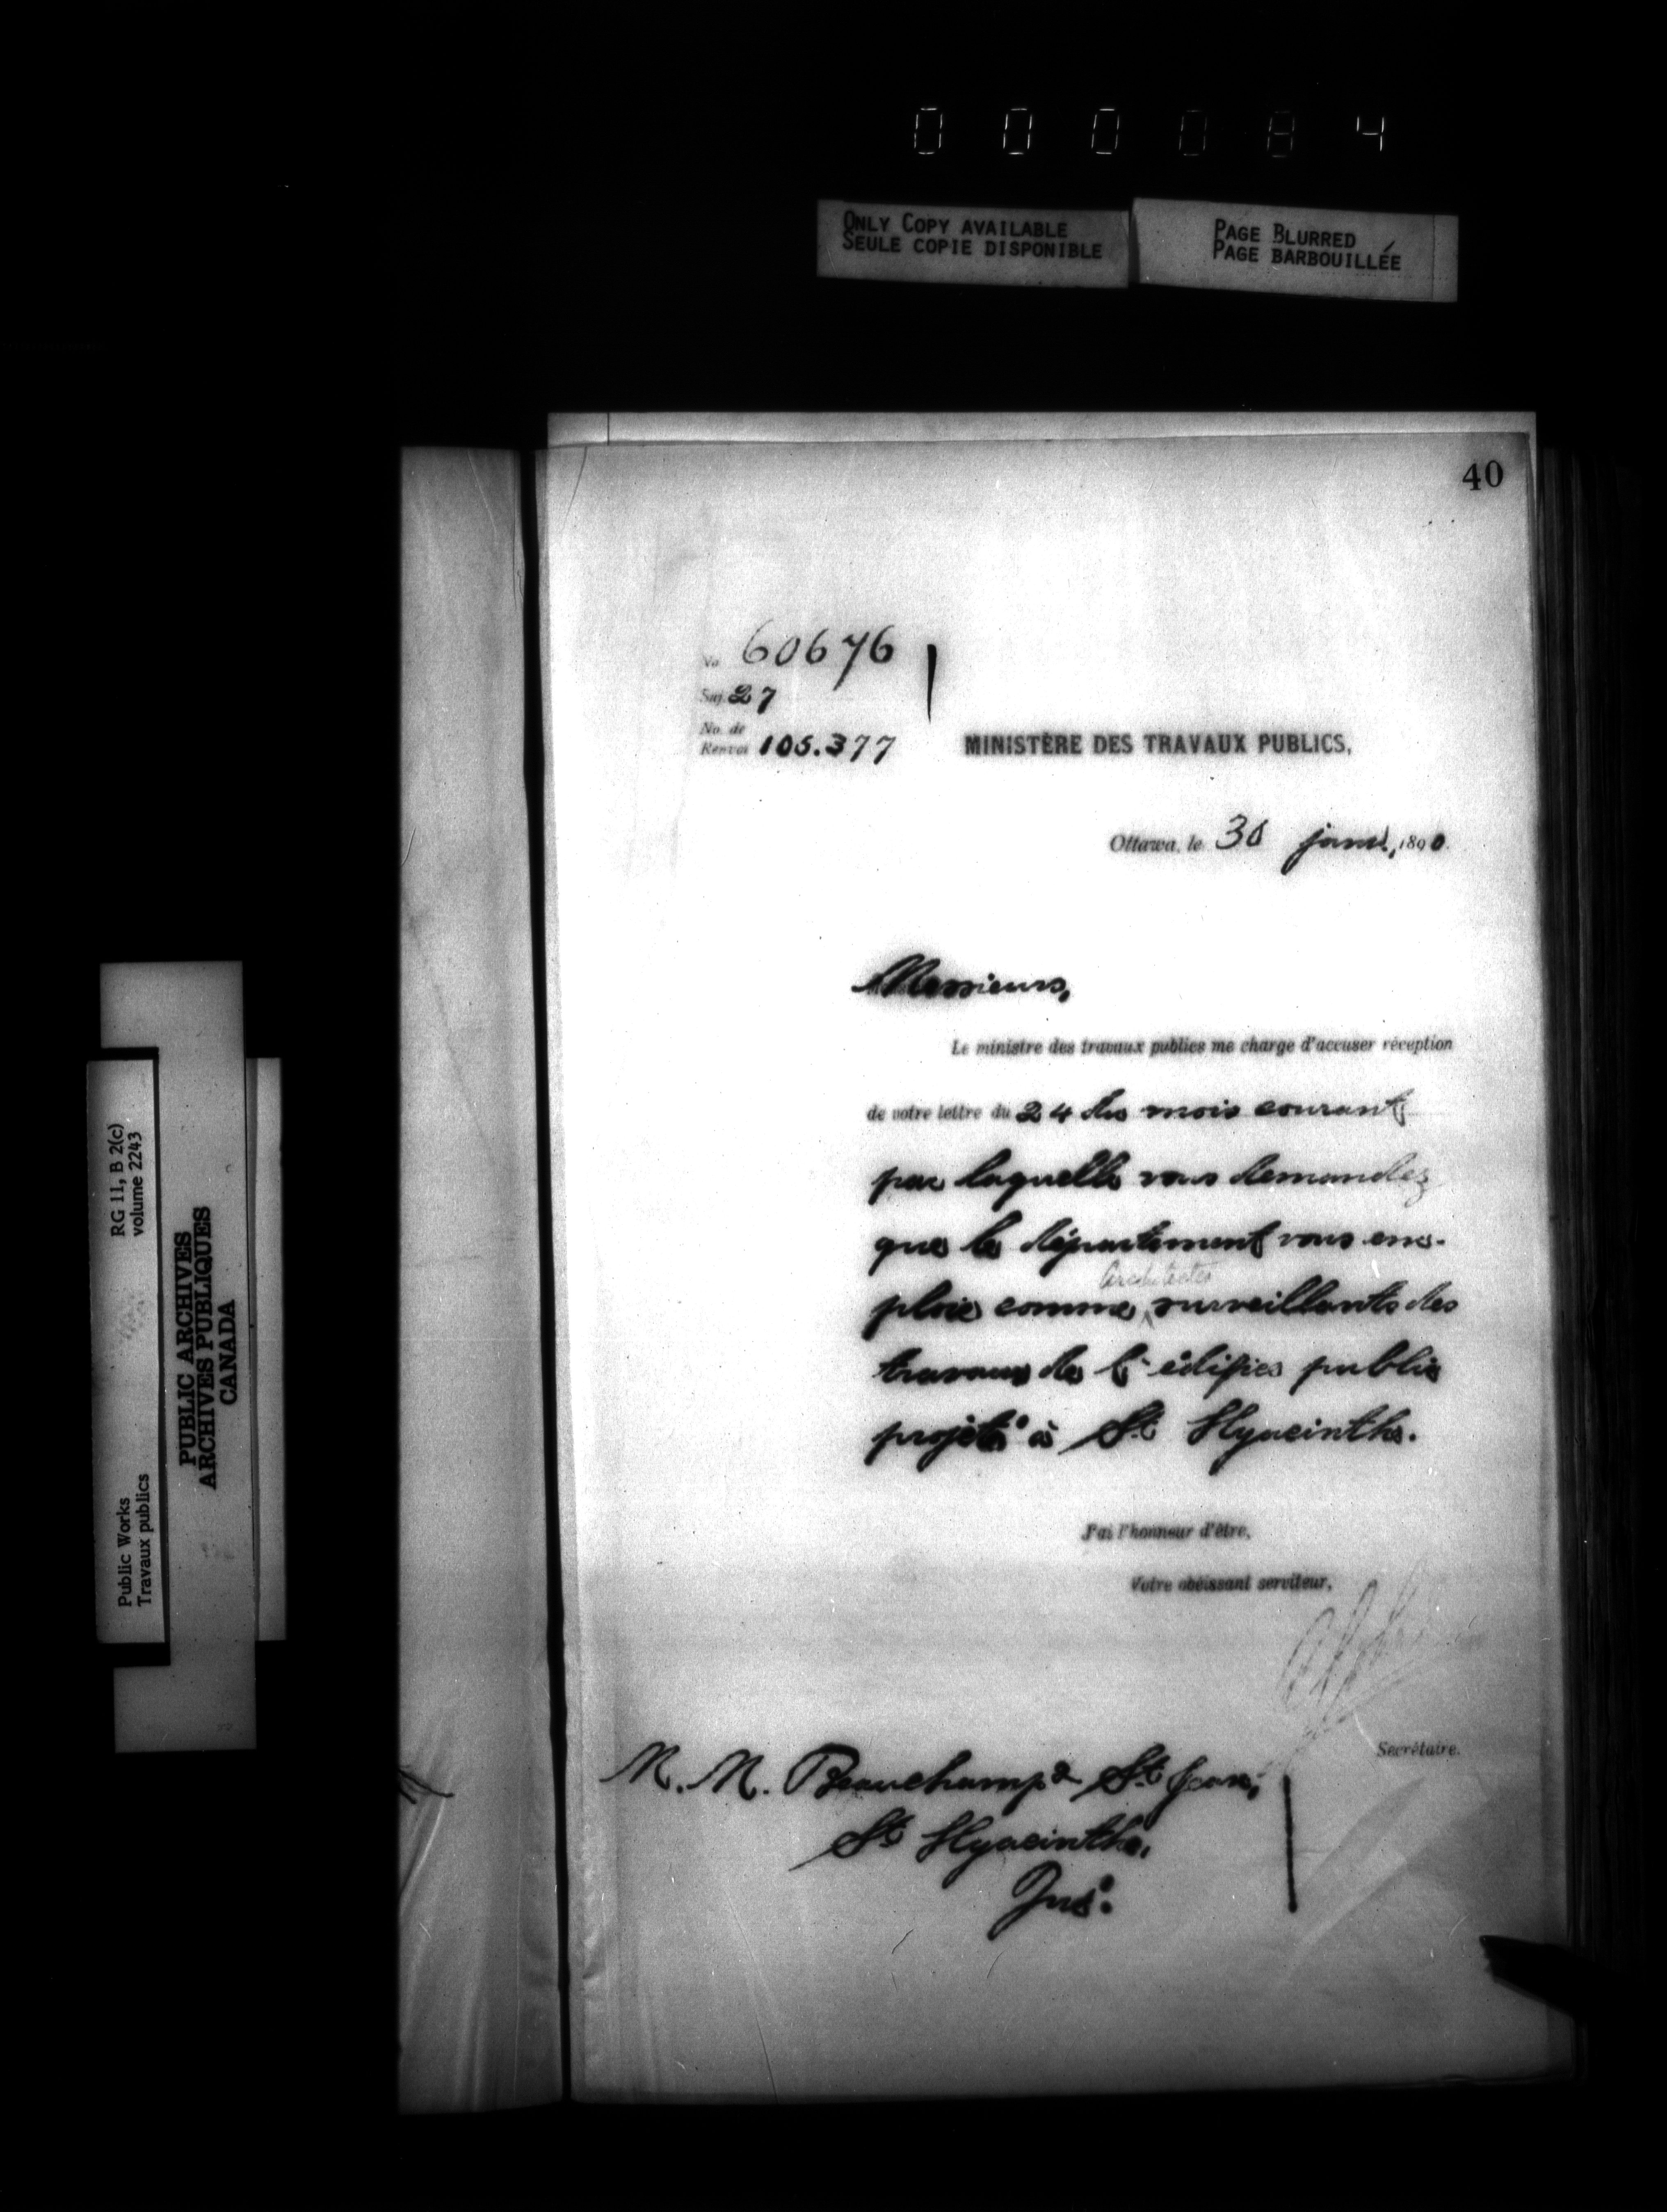 000084
ONLY COPY AVAILABLE
SEULE COPIE DISPONIBLE
PAGE BLURRED
PAGE BARBOUILLÉE
40
No. 60676
Suj. 27
No. de
Renvoi 105.377
MINISTÈRE DES TRAVAUX PUBLICS,
Ottawa, le 30 janv., 1890.
Messieurs,
Le ministre des travaux publics me charge d'accuser réception
de votre lettre du 24 du mois courant
par laquelle vous demandez
que le département vous em-
Architectes
ploie comme surveillants des
travaux de l'édifice public
projeté à St Hyacinthe.
J'ai l'honneur d'être,
Votre obéissant serviteur,
Secrétaire.
M. M. Beauchamp & St Jean,
St Hyacinthe,
RG 11, B 2(c)
volume 2243
Public Works
Travaux publics
PUBLIC ARCHIVES
ARCHIVES PUBLIQUES
CANADA